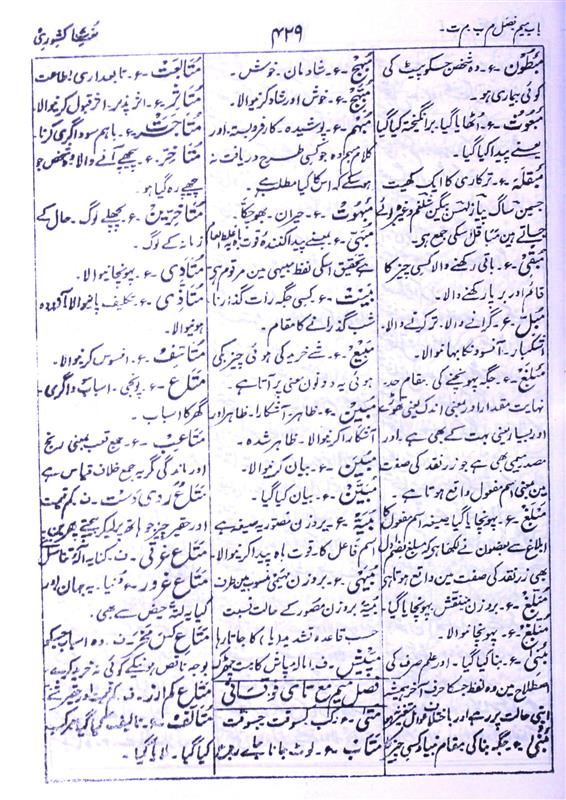 باب میم فصل م ب۔م ت۔
۴۲۹
لغات کشوری
مبطون۔ع۔وہ شخص جسکو پیٹ کی
کوئی بیماری ہو۔
مبعوث۔ع۔اُٹھایا گیا۔برانگیختہ کیا گیا
یعنے پیدا کیا گیا۔
مبقلہ۔ع۔ترکاری کا ایک کھیت
جسمین ساگ پیاز لہسن بیگن شلغم وغیرہ بوئے
جاتے ہین مباقل اسکی جمع ہی۔
مبقی۔ع۔باقی رکھنے والا کسی چیز کا
قائم اور برپا رکھنے والا۔
مبلل۔ع۔گرانے والا۔تر کرنے والا۔
اشکبار۔آنسو کا بہانیوالا۔
مبلغ۔ع۔جگہ پہونچنے کی۔مقام حد
نہایت مقدار اور بمعنی اندک یعنی تھوڑے
اور بسیار یعنی بہت کے بھی ہے۔اور
مصدر میمی بھی ہے جو زر نقد کی صفت
مین بمعنی اسم مفعول واقع ہوتا ہے۔
مبلغ۔ع۔پہونچایا گیا صیغہ اسم مفعول کا
ابلاغ سے بعضون نے لکھا ہو کہ مبلغ بضم اول
بھی زر نقد کی صفت مین واقع ہوتا ہی
مبلغ۔ع۔بروزن منقش۔پہونچایا گیا۔
مبلغ۔ع۔پہونچانیوالا۔
مبنی۔ع۔بنا کیا گیا۔اور علم صرف کی
اصطلاح مین وہ لفظ جسکا حرف آخر ہمیشہ
اپنی حالت پر رہے اور باختلاف عوامل متغیر نہو
مبنی۔ع۔جگہ بنا کی مقام بنیاد کسی چیز کا
مبہج۔ع۔شادمان۔خوش۔
مبہج۔ع۔خوش اور شاد کرنیوالا۔
مبہم۔ع۔پوشیدہ۔کار فروبستہ۔اور
کلام مبہم وہ جو کسی طرح دریافت نہ
ہوسکے کہ اسکا کیا مطلب ہے۔
مبہوت۔ع۔حیران۔بھوچکا۔
مبہی۔ع۔بمعنے پیدا کنندہ قوت باہ یہ غلط العام
ہے تحقیق اسکی لفظ مبیہی مین مرقوم ہی
مبیت۔ع۔کسی جگہ رات گذارنا۔
شب گذرانے کا مقام۔
مبیع۔ع۔شے خرید کی ہوئی چیز بکی
ہوئی یہ دونون معنی پر آتا ہے۔
مبین۔ع۔ظاہر۔آشکارا۔ظاہر اور
آشکارا کرنیوالا۔ظاہر شدہ۔
مبین۔ع۔بیان کرنیوالا۔
مبین۔ع۔بیان کیا گیا۔
مبیہ۔ع۔بروزن مصور یہ صیغہ ہے
اسم فاعل کا۔قوت باہ پیدا کرنیوالا۔
مبیہی۔ع۔بروزن معنی منسوب بین طرف
مبیہ بروزن مصور کے حالت نسبت
حسب قاعدہ تشدید (ی) کا جاتا رہا
مپیش۔ف۔امر از پاش کا مت چھڑک
فصل میم مع تای فوقانی
متی۔ع۔کب۔کسوقت۔جسوقت
متاب۔ع۔لوٹ جانا۔جاے رجوع
متابعت۔ع۔تابعداری۔اطاعت
متاثر۔ع۔اثر پذیر۔اثر قبول کرنیوالا۔
متاجرت۔ع۔باہم سوداگری کرنا۔
متاخر۔ع۔پیچھے آنے والا۔وہ شخص جو
پیچھے رہ گیا ہو۔
متاخرین۔ع۔پچھلے لوگ۔حال کے
زمانہ کے لوگ۔
متادی۔ع۔پہونچانیوالا۔
متاذی۔ع۔تکلیف پانیوالا۔آزردہ
ہونیوالا۔
متاسف۔ع۔افسوس کرنیوالا۔
متاع۔ع۔پونجی۔اسباب سوداگری۔
گھر کا اسباب۔
متاعب۔ع۔جمع تعب بمعنی رنج
اور ماندگی گر یہ جمع خلاف قیاس ہے
متاع روی دست۔ف۔کم قیمت
اور حقیر چیز جو ہاتھ پر لیکر بیچتے پھرین۔
متاع غرقی۔ف۔کنایہ آلہ تناسل
متاع غرور۔ع۔دنیا۔یہ جہان اور
کنایہ لتہ حیض سے بھی۔
متاع کس مخر۔ف۔وہ اسباب جسکو
بوجہ ناقص ہونیکے کوئی نہ خریدے۔
متاع کم ارز۔ف۔کم قیمت اور حقیر شے
متالف۔ع۔تالیف کیا گیا۔جمع مرکب
کیا گیا۔لایا گیا۔